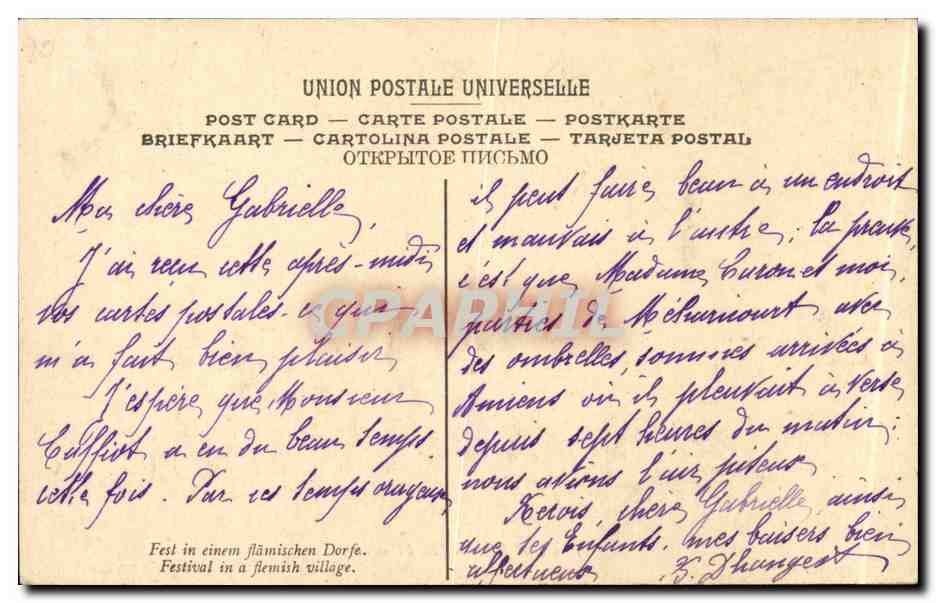 UNION POSTALE UNIVERSELLE
POST CARD — CARTE POSTALE — POSTKARTE
BRIEFKAART — CARTOLINA POSTALE — TARJETA POSTAL
ОТКРЫТОЕ ПИСЬМО
Ma chère Gabrielle,
J'ai reçu cette après-midi
vos cartes postales - ce qui
m'a fait bien plaisir
J'espère que Monsieur
a eu du beau temps
cette fois. Par ces temps orageux,
Fest in einem flämischen Dorfe.
Festival in a flemish village.
il peut faire beau à un endroit
et mauvais à l'autre; la preuve,
c'est que Madame Caron et moi,
parties de Méharicourt avec
des ombrelles, sommes arrivées à
Amiens où il pleuvait à verse
depuis sept heures du matin;
nous avions l'air piteux
chère Gabrielle, ainsi
que les Enfants, mes baisers bien
affectueux
CPAPHIL